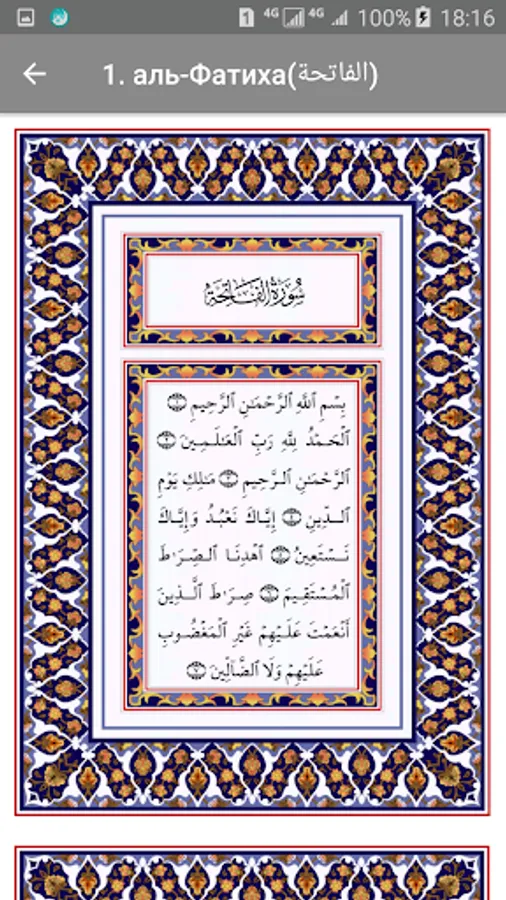 1 4G 4G 100% 18:16
1. аль-Фатиха(الفاتحة)
سُورَةُ الفَاتِحَةِ
بِسْمِ ٱللَّهِ ٱلرَّحْمَـٰنِ ٱلرَّحِيمِ ۝١
ٱلْحَمْدُ لِلَّهِ رَبِّ ٱلْعَـٰلَمِينَ ۝٢
ٱلرَّحْمَـٰنِ ٱلرَّحِيمِ ۝٣ مَـٰلِكِ يَوْمِ
ٱلدِّينِ ۝٤ إِيَّاكَ نَعْبُدُ وَإِيَّاكَ
نَسْتَعِينُ ۝٥ ٱهْدِنَا ٱلصِّرَٰطَ
ٱلْمُسْتَقِيمَ ۝٦ صِرَٰطَ ٱلَّذِينَ
أَنْعَمْتَ عَلَيْهِمْ غَيْرِ ٱلْمَغْضُوبِ
عَلَيْهِمْ وَلَا ٱلضَّآلِّينَ ۝٧